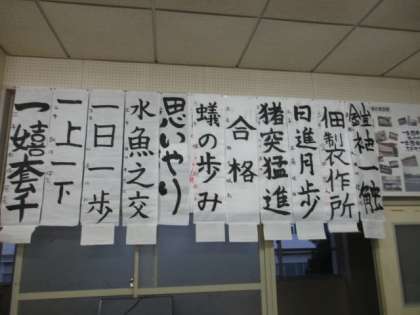 鎧袖一触
佃製作所
日進月歩
猪突猛進
合格
蟻の歩み
思いやり
水魚之交
一日一歩
一上一下
一嬉套千